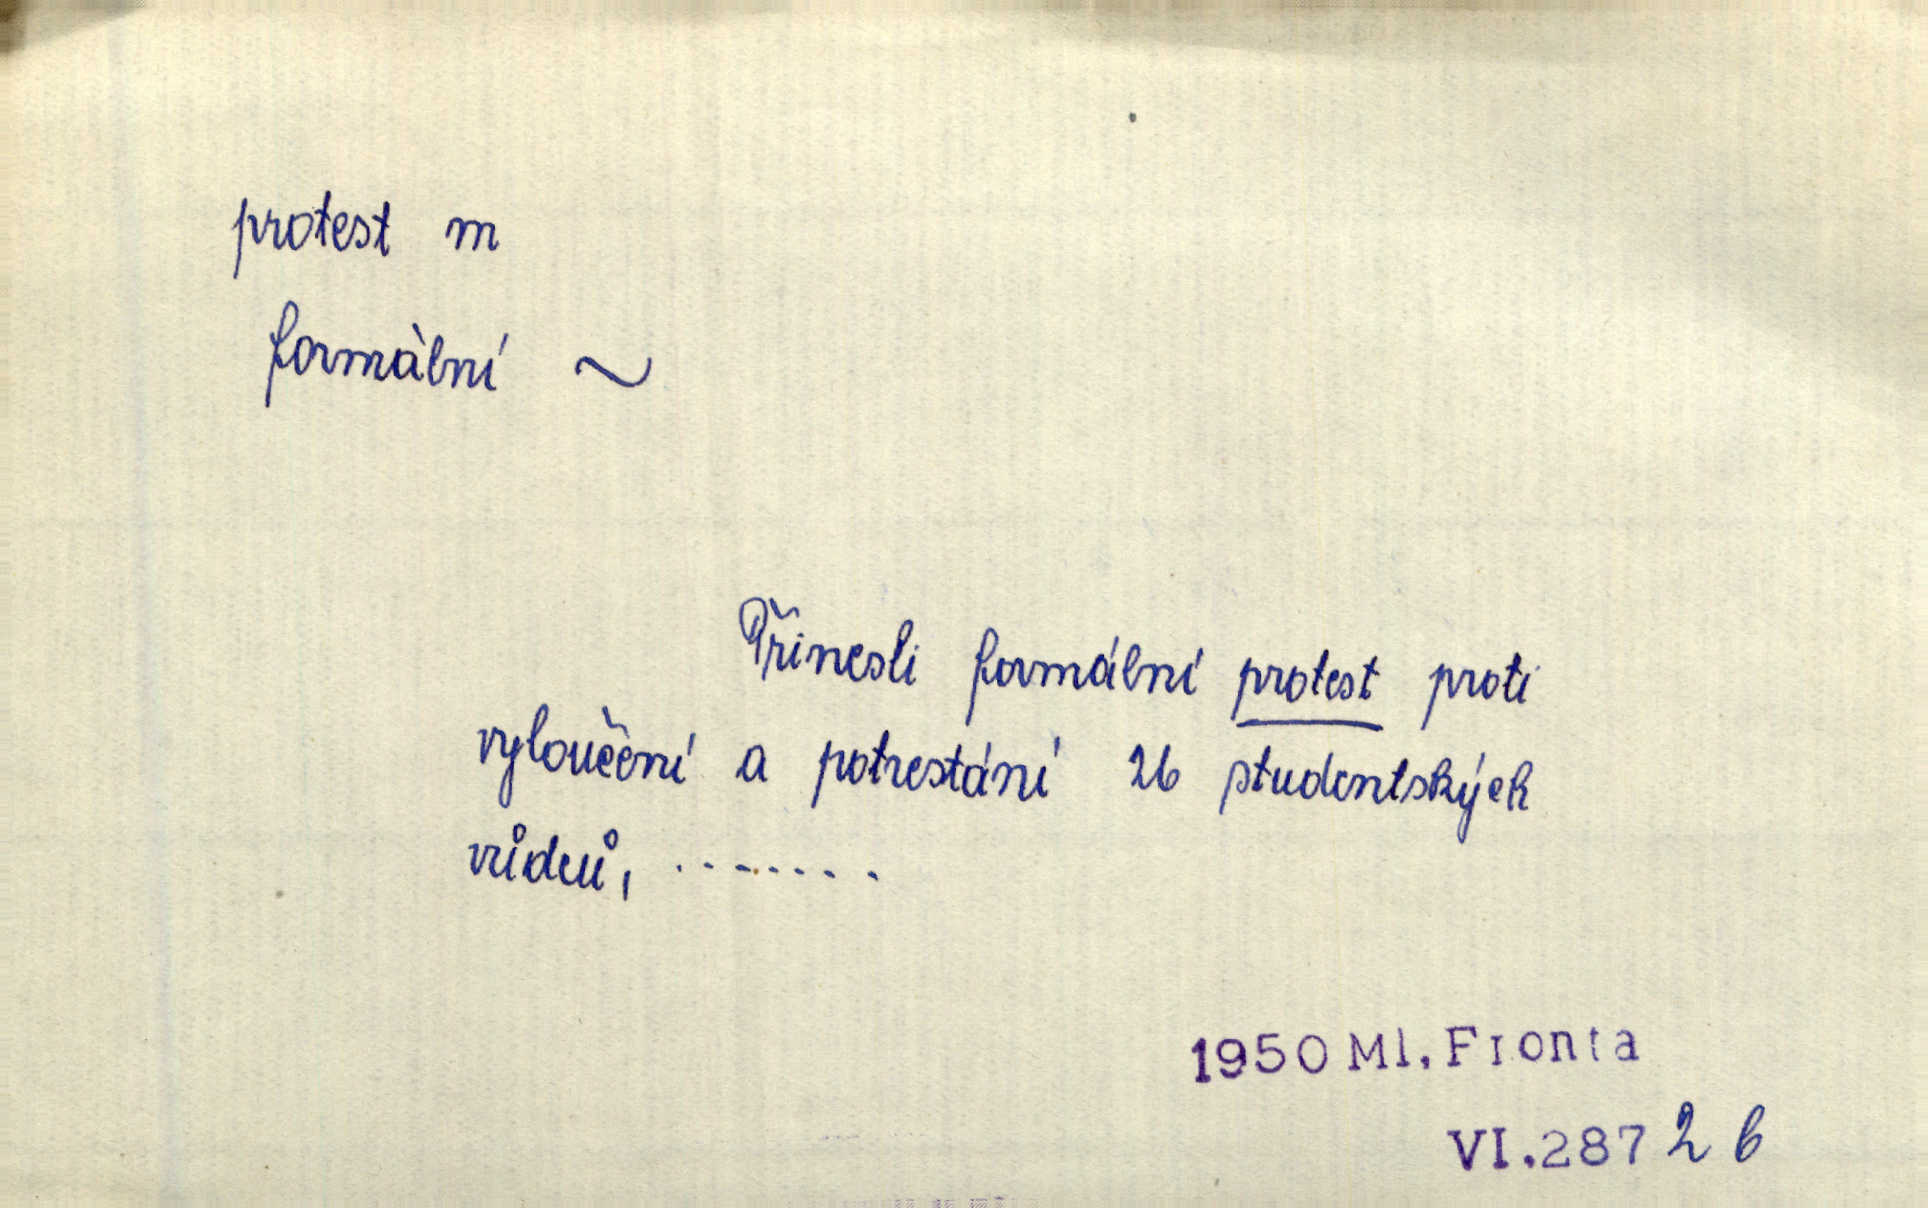 protest m
formální ~
Přinesli formální protest proti
vyloučení a potrestání 26 studentských
vůdců, ........
1950 Ml. Fronta
VI.287 2 b